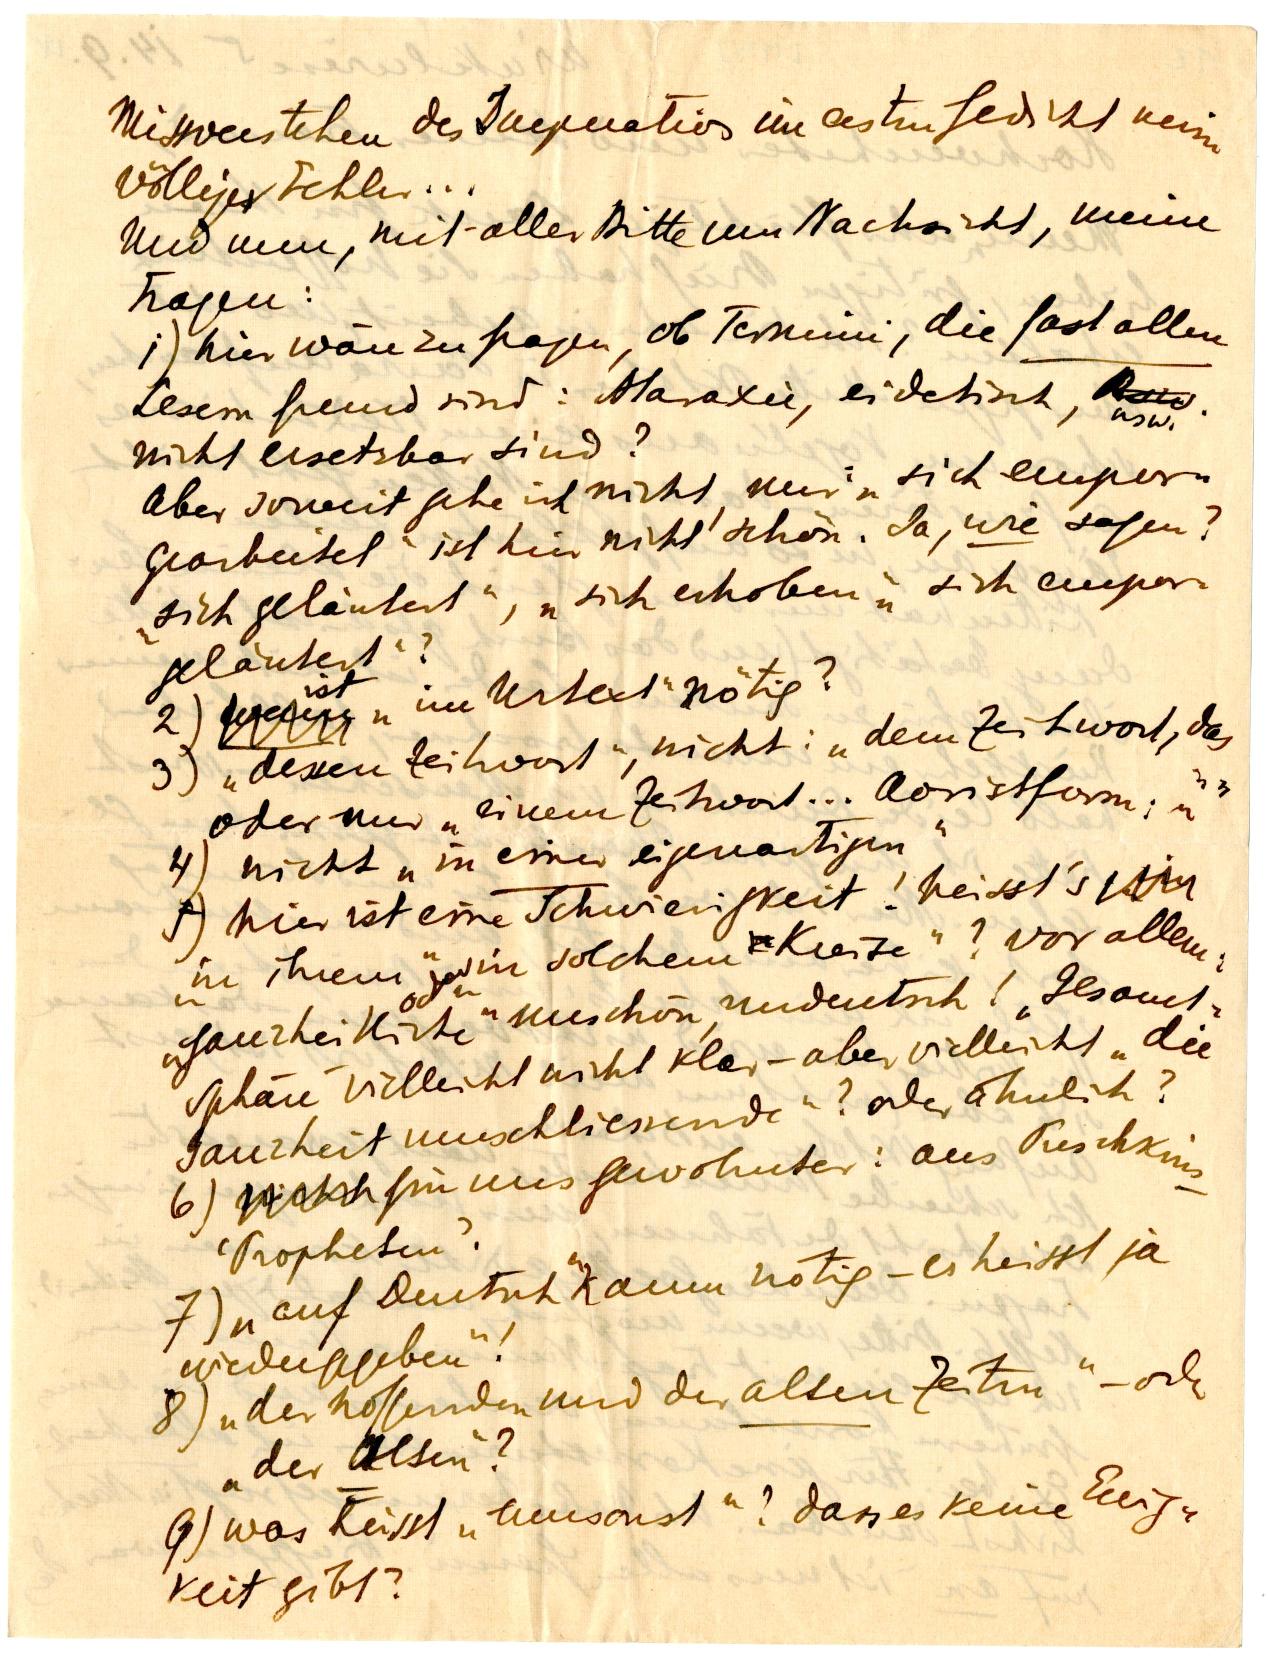 Missverstehen des Imperativs im ersten Gedicht mein
völliger Fehler...
Und nun, mit aller Bitte um Nachsicht, meine
Fragen:
1) hier wäre zu fragen, ob Termini, die fast allen
Lesern fremd sind: Ataraxie, eidetisch, usw.
nicht ersetzbar sind?
Aber soweit gehe ich nicht, nur: „sich empor-
gearbeitet“ ist hier nicht schön. Ja, wie sagen?
„sich geläutert“, „sich erhoben“ „sich empor-
geläutert“?
2) ist „im Urtext“ nötig?
3) „dessen Zeitwort“, nicht: „dem Zeitwort, das“
oder nur „einem Zeitwort... Aoristform;“
4) nicht „in einer eigenartigen“
5) hier ist eine Schwierigkeit! heisst's
„in ihrem“ oder „in solchem Kreise“? vor allem:
„ganzheitlichste“ unschön, undeutsch! „Gesamt-
sphäre“ vielleicht nicht klar – aber vielleicht „die
Ganzheit umschliessende“? oder ähnlich?
6) für uns gewohnter: aus Puschkins
‚Propheten‘.
7) „auf Deutsch“ kaum nötig – es heisst ja
wiedergegeben“!
8) „der hoffenden und der alten Zeiten“ – oder
„der Alten“?
9) was heisst „umsonst“? dass es keine Ewig-
keit gibt?